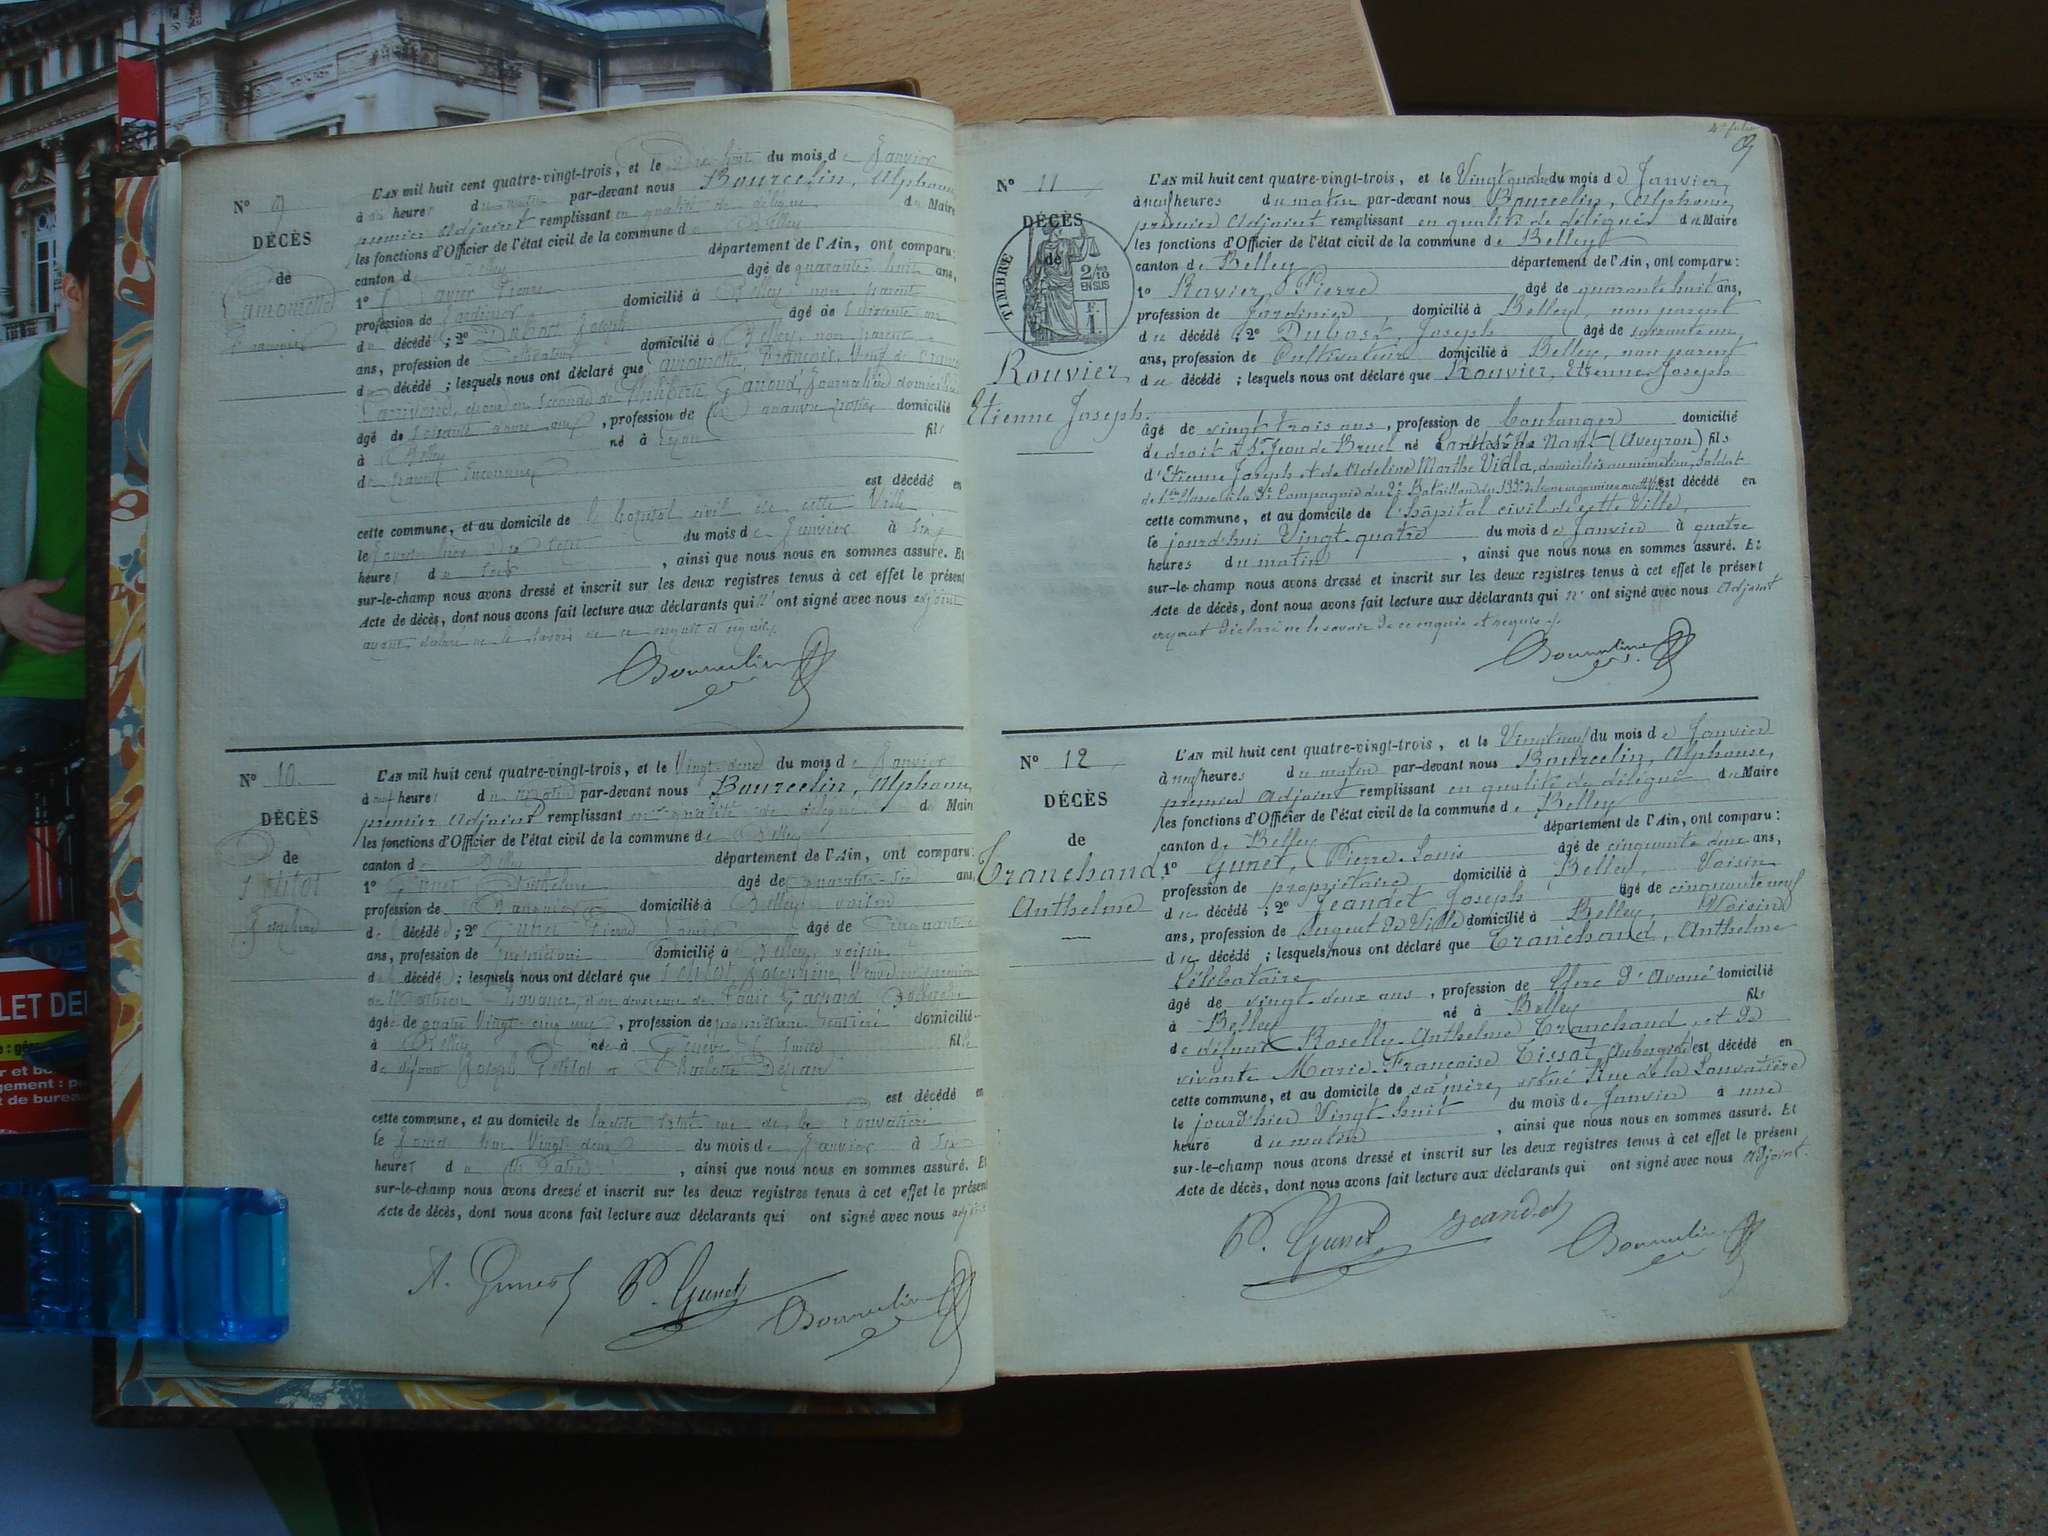 N° 9
DÉCÈS
de
L'AN mil huit cent quatre-vingt-trois, et le Dix huit du mois de Janvier
à heures du matin par-devant nous Bourcelin, Alphonse,
premier Adjoint remplissant en qualité de délégué du Maire
les fonctions d'Officier de l'état civil de la commune de Belley
canton de Belley département de l'Ain, ont comparu:
1° Pierre âgé de quarante huit ans,
profession de Jardinier domicilié à Belley, non parent
du décédé ; 2° Dubost Joseph âgé de soixante un
ans, profession de Cultivateur domicilié à Belley, non parent
du décédé ; lesquels nous ont déclaré que François, Veuf de
époux en secondes de Philiberte Journalière
âgé de soixante neuf, profession de domicilié
à Belley né à Lyon fils
de Inconnus
est décédé en
cette commune, et au domicile de l'hôpital civil de cette Ville
le du mois de Janvier à
heures du soir, ainsi que nous nous en sommes assuré. Et
sur-le-champ nous avons dressé et inscrit sur les deux registres tenus à cet effet le présent
Acte de décès, dont nous avons fait lecture aux déclarants qui n'ont signé avec nous adjoint
ayant déclaré ne le savoir de ce enquis et requis
Bourcelin
N° 10
DÉCÈS
de
L'AN mil huit cent quatre-vingt-trois, et le Vingt deux du mois de Janvier
à neuf heures du matin par-devant nous Bourcelin, Alphonse,
premier Adjoint remplissant en qualité de délégué du Maire
les fonctions d'Officier de l'état civil de la commune de Belley
canton de Belley département de l'Ain, ont comparu:
1° Gunet Anthelme âgé de quarante six ans,
profession de domicilié à Belley voisin
de la décédée ; 2° Gunet Pierre Louis âgé de Cinquante
ans, profession de propriétaire domicilié à Belley, voisin
de la décédée ; lesquels nous ont déclaré que
âgée de quatre Vingt cinq ans, profession de propriétaire rentière domiciliée
à Belley née à Genève fille
de défunt Joseph et
est décédée en
cette commune, et au domicile de rue de la Louvatière
le Vingt deux du mois de Janvier à Six
heures du Matin, ainsi que nous nous en sommes assuré. Et
sur-le-champ nous avons dressé et inscrit sur les deux registres tenus à cet effet le présent
Acte de décès, dont nous avons fait lecture aux déclarants qui ont signé avec nous adjoint
A. Gunet P. Gunet Bourcelin
4e folio
9
N° 11
DÉCÈS
de
TIMBRE
2/10 EN SUS
F. 1.
Rouvier
Etienne Joseph.
L'AN mil huit cent quatre-vingt-trois, et le Vingt quatre du mois de Janvier,
à neuf heures du matin par-devant nous Bourcelin, Alphonse,
premier Adjoint remplissant en qualité de délégué du Maire
les fonctions d'Officier de l'état civil de la commune de Belley
canton de Belley département de l'Ain, ont comparu:
1° Ravier, Pierre âgé de quarante huit ans,
profession de Jardinier, domicilié à Belley, non parent
du décédé ; 2° Dubost Joseph âgé de soixante un
ans, profession de Cultivateur domicilié à Belley, non parent
du décédé ; lesquels nous ont déclaré que Rouvier, Etienne Joseph
âgé de vingt trois ans, profession de boulanger domicilié
de droit à St Jean de Bruel né Nant (Aveyron) fils
d'Etienne Joseph et de Adeline Marthe Vidla, domiciliés au même lieu, Soldat
de 1ère classe à la 3e Compagnie du 2e Bataillon du 133e de ligne en garnison est décédé en
cette commune, et au domicile de l'hôpital civil de cette Ville,
le jourd'hui Vingt-quatre du mois de Janvier à quatre
heures du matin, ainsi que nous nous en sommes assuré. Et
sur-le-champ nous avons dressé et inscrit sur les deux registres tenus à cet effet le présent
Acte de décès, dont nous avons fait lecture aux déclarants qui n'ont signé avec nous Adjoint
ayant déclaré ne le savoir de ce enquis et requis
Bourcelin
N° 12
DÉCÈS
de
Tranchand
Anthelme
L'AN mil huit cent quatre-vingt-trois, et le Vingt neuf du mois de Janvier
à neuf heures du matin par-devant nous Bourcelin, Alphonse,
premier Adjoint remplissant en qualité de délégué du Maire
les fonctions d'Officier de l'état civil de la commune de Belley
canton de Belley département de l'Ain, ont comparu:
1° Gunet, Pierre Louis âgé de cinquante deux ans,
profession de propriétaire domicilié à Belley, Voisin
du décédé ; 2° Jeandet Joseph âgé de cinquante neuf
ans, profession de Sergent de Ville domicilié à Belley, Voisin
du décédé ; lesquels nous ont déclaré que Tranchand, Anthelme
Célibataire
âgé de vingt-deux ans, profession de Clerc d'Avoué domicilié
à Belley né à Belley fils
de défunt Roselly-Anthelme Tranchand, et de
vivante Marie-Françoise Tissot, Aubergiste est décédé en
cette commune, et au domicile de sa mère, situé Rue de la Louvatière
le jourd'hier Vingt-huit du mois de Janvier à une
heure du matin, ainsi que nous nous en sommes assuré. Et
sur-le-champ nous avons dressé et inscrit sur les deux registres tenus à cet effet le présent
Acte de décès, dont nous avons fait lecture aux déclarants qui ont signé avec nous Adjoint.
P. Gunet Jeandet Bourcelin